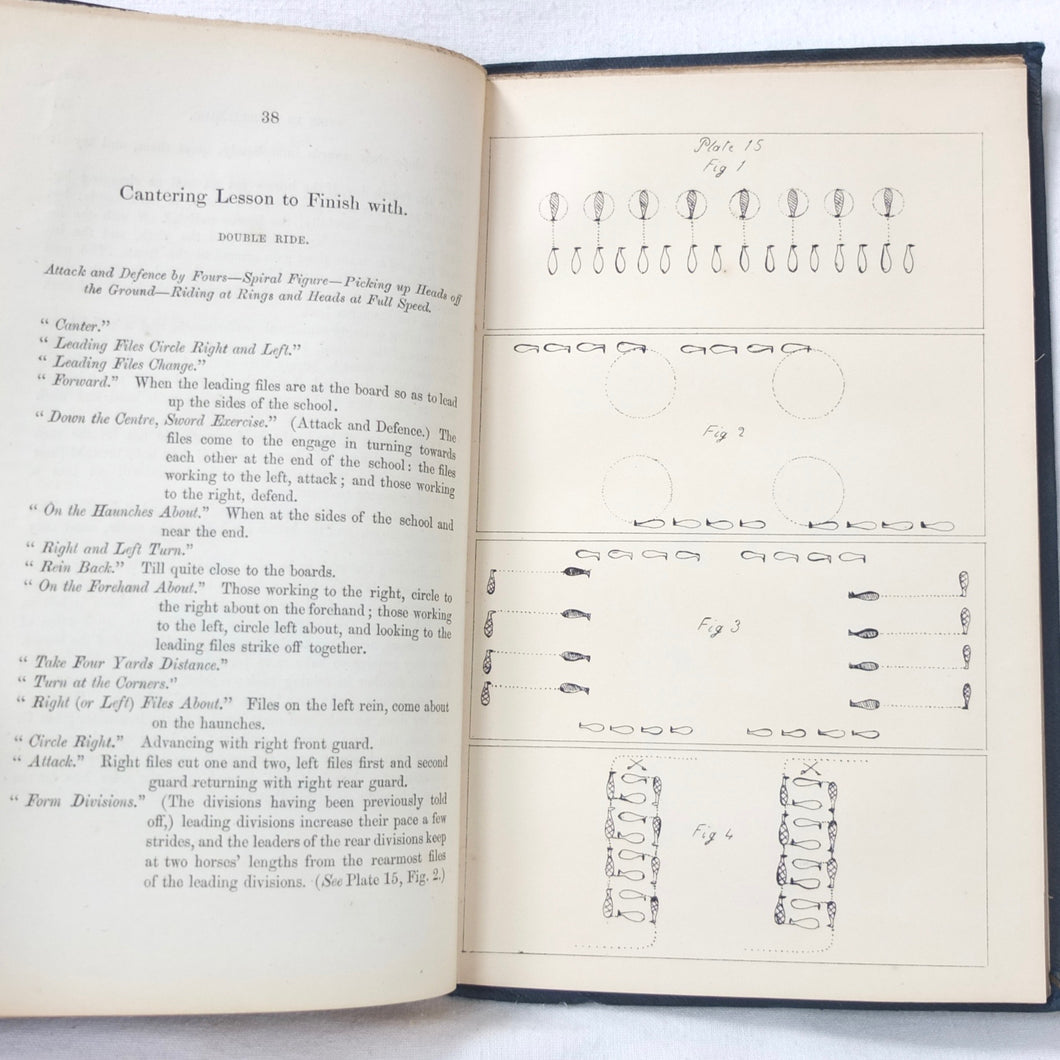 38
Cantering Lesson to Finish with.
DOUBLE RIDE.
Attack and Defence by Fours—Spiral Figure—Picking up Heads off
the Ground—Riding at Rings and Heads at Full Speed.
“ Canter.”
“ Leading Files Circle Right and Left.”
“ Leading Files Change.”
“ Forward.” When the leading files are at the board so as to lead
up the sides of the school.
“ Down the Centre, Sword Exercise.” (Attack and Defence.) The
files come to the engage in turning towards
each other at the end of the school: the files
working to the left, attack; and those working
to the right, defend.
“ On the Haunches About.” When at the sides of the school and
near the end.
“ Right and Left Turn.”
“ Rein Back.” Till quite close to the boards.
“ On the Forehand About.” Those working to the right, circle to
the right about on the forehand; those working
to the left, circle left about, and looking to the
leading files strike off together.
“ Take Four Yards Distance.”
“ Turn at the Corners.”
“ Right (or Left) Files About.” Files on the left rein, come about
on the haunches.
“ Circle Right.” Advancing with right front guard.
“ Attack.” Right files cut one and two, left files first and second
guard returning with right rear guard.
“ Form Divisions.” (The divisions having been previously told
off,) leading divisions increase their pace a few
strides, and the leaders of the rear divisions keep
at two horses’ lengths from the rearmost files
of the leading divisions. (See Plate 15, Fig. 2.)
Plate 15
Fig 1
Fig 2
Fig 3
Fig 4